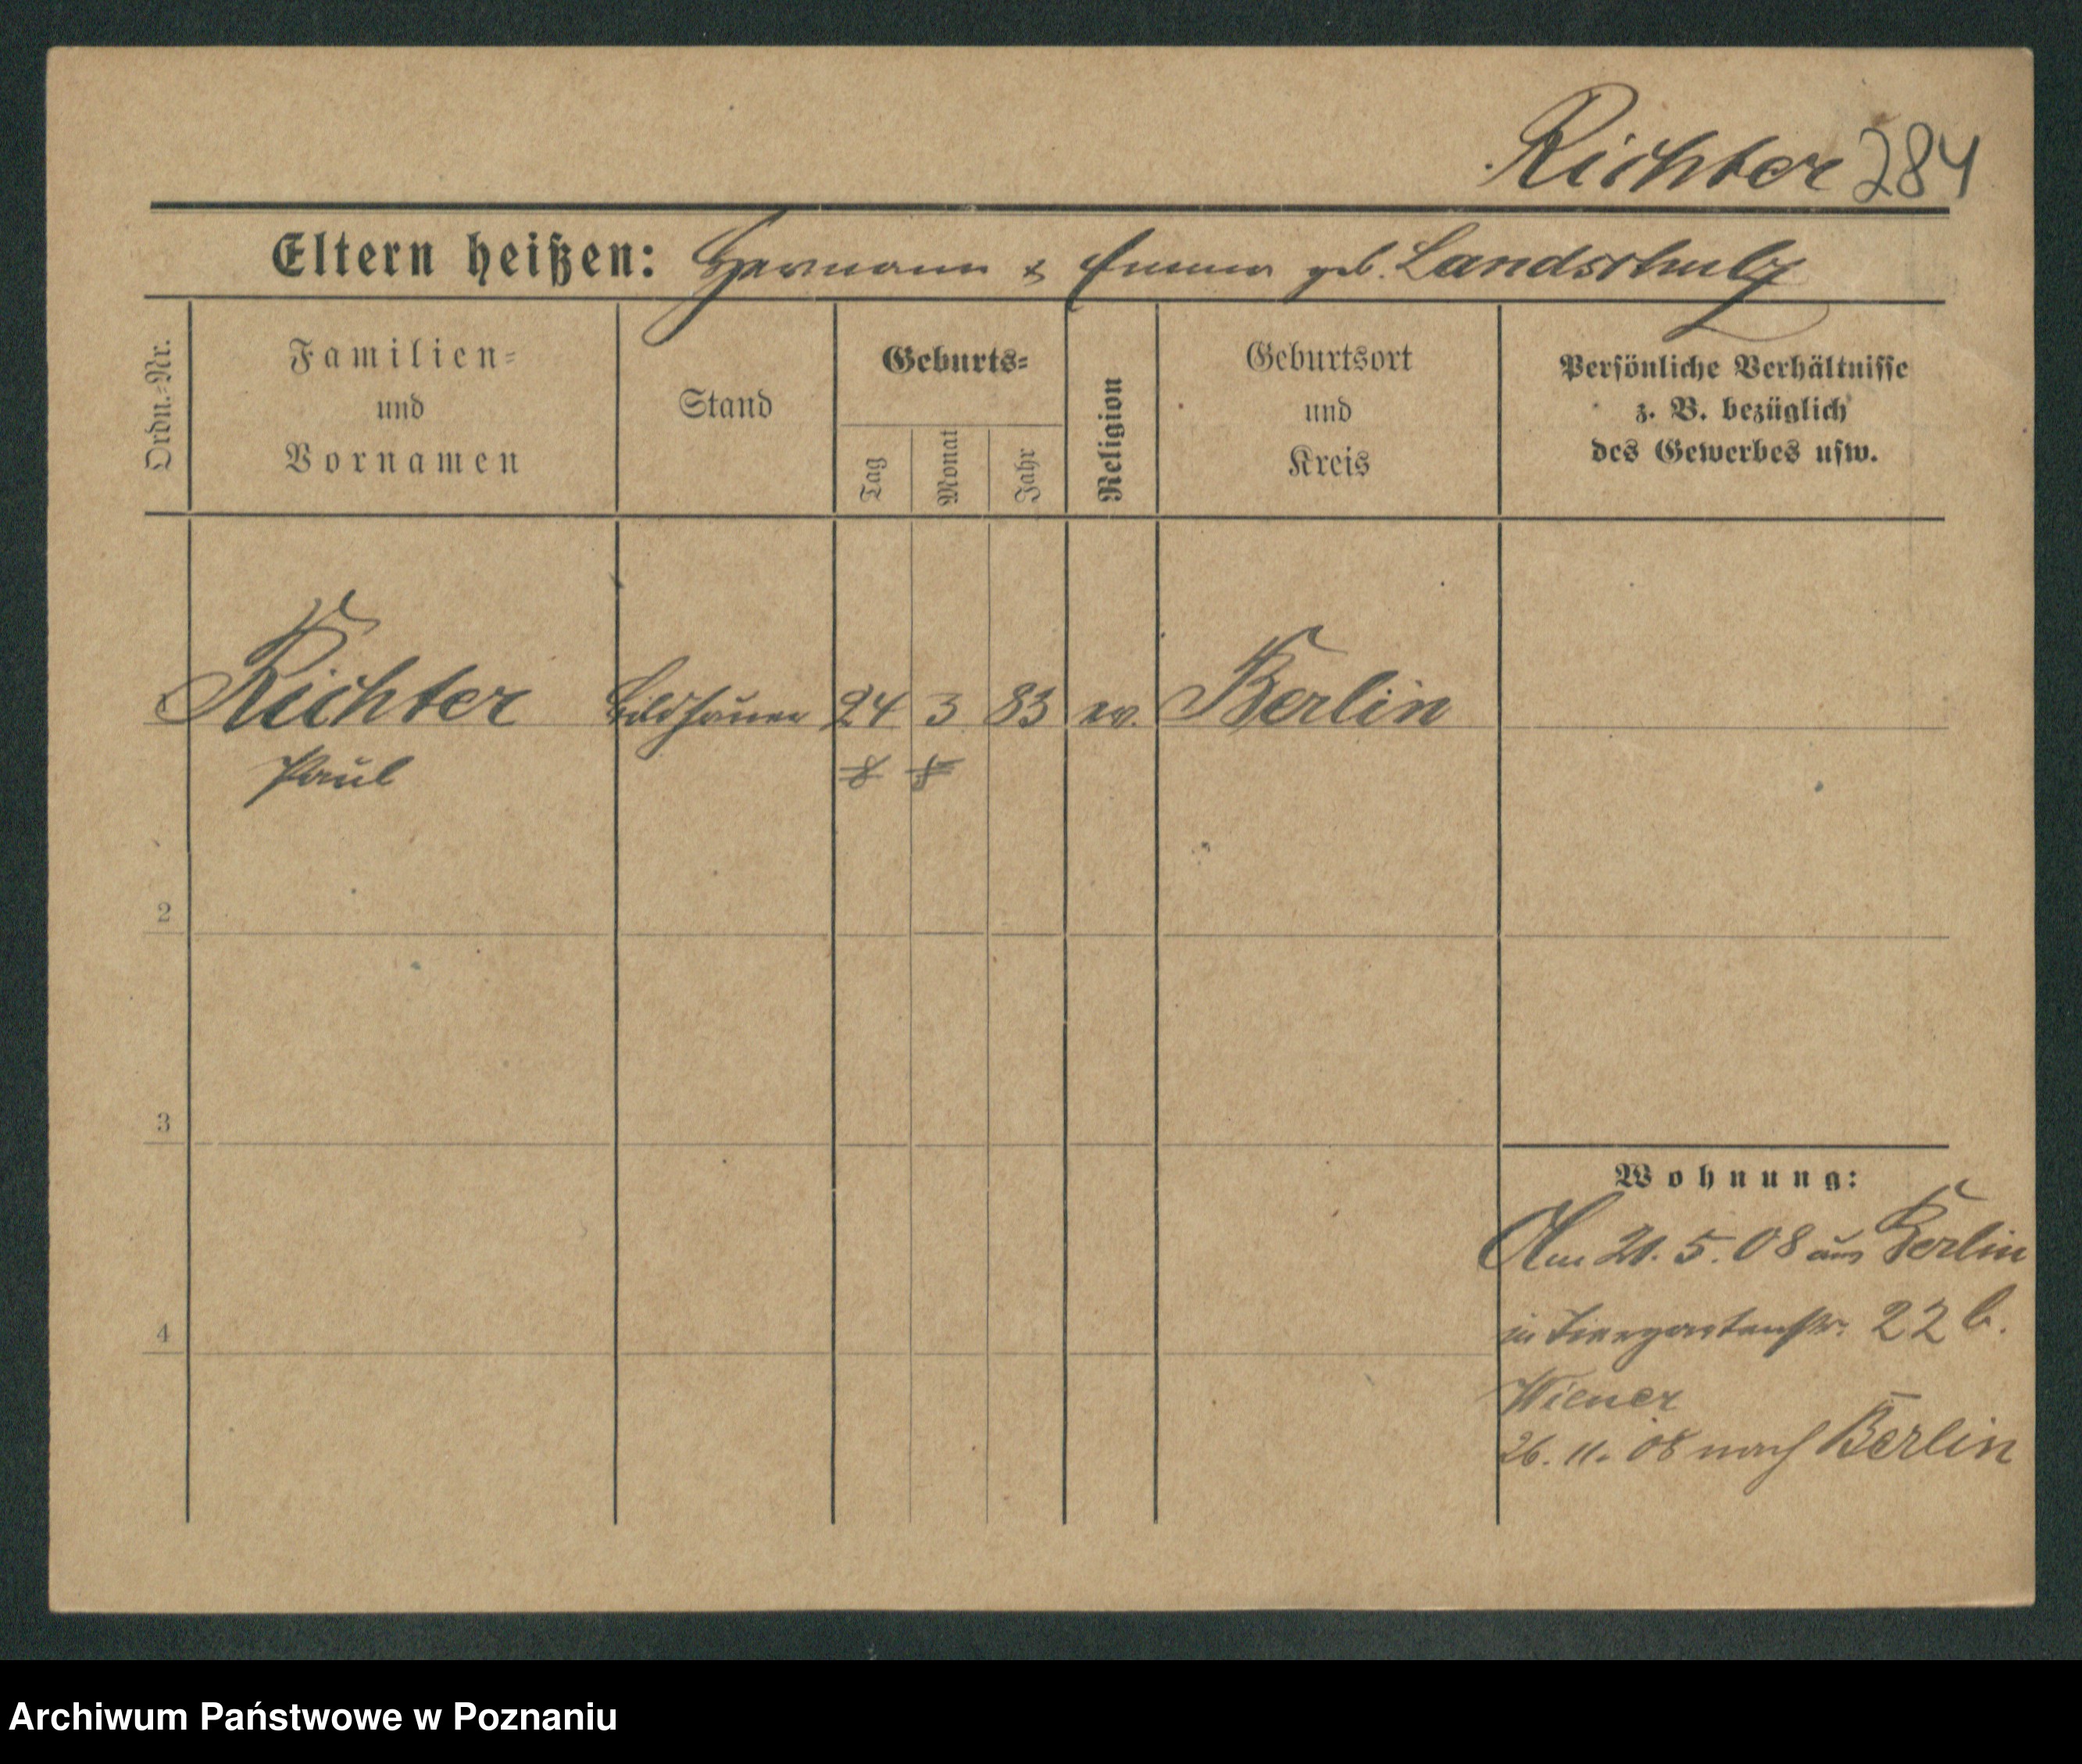 Richter 284
Eltern heißen: Hermann & Emma geb. Landschulz
Ordn.=Nr.
Familien=
und
Vornamen
Stand
Geburts=
Tag
Monat
Jahr
Religion
Geburtsort
und
Kreis
Persönliche Verhältnisse
z. B. bezüglich
des Gewerbes usw.
Richter Bildhauer 24 3 83 ev. Berlin
Paul 8 8
2
3
4
Wohnung:
Am 21. 5. 08 aus Berlin
in Tiergartenstr. 22 b.
Wiener
26. 11. 08 nach Berlin
Archiwum Państwowe w Poznaniu